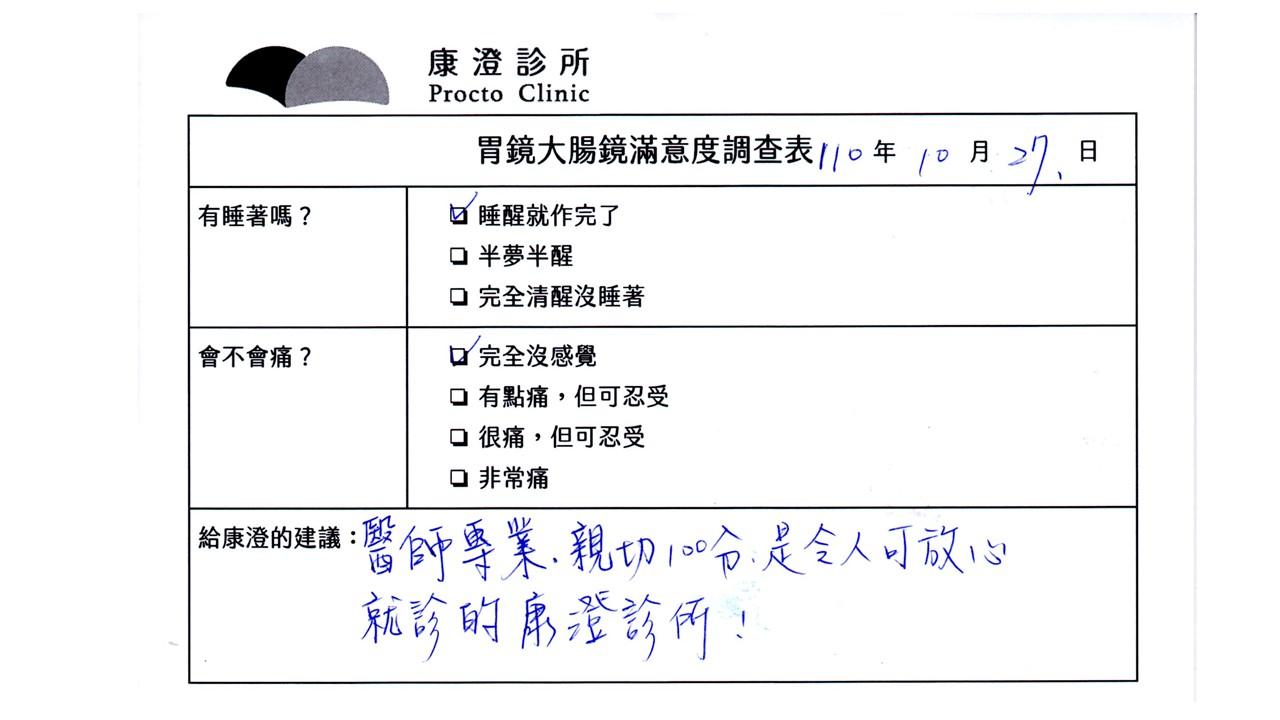 康澄診所
Procto Clinic
胃鏡大腸鏡滿意度調查表 110 年 10 月 27 日
有睡著嗎？
睡醒就作完了
半夢半醒
完全清醒沒睡著
會不會痛？
完全沒感覺
有點痛，但可忍受
很痛，但可忍受
非常痛
給康澄的建議：醫師專業、親切100分、是令人可放心
就診的康澄診所！